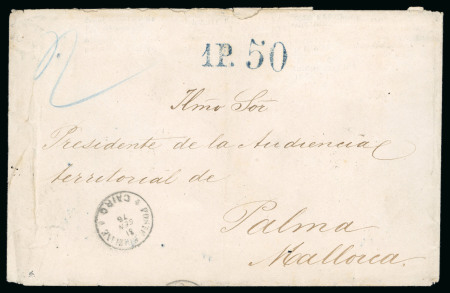 1P. 50
Ilmo Sor
Presidente de la Audiencia
territorial de
Palma
Mallorca
POSTE KHEDEVIE
CAIRO
GEN
76